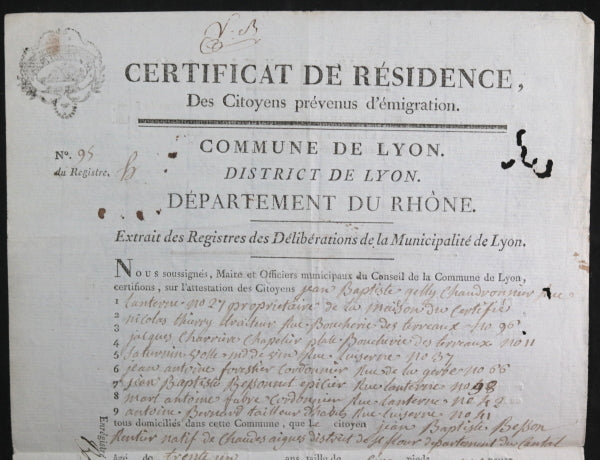 V. B
CERTIFICAT DE RÉSIDENCE,
Des Citoyens prévenus d'émigration.
COMMUNE DE LYON.
N°. 95
du Registre. h
DISTRICT DE LYON.
DÉPARTEMENT DU RHÔNE.
Extrait des Registres des Délibérations de la Municipalité de Lyon.
NOUS soussignés, Maire et Officiers municipaux du Conseil de la Commune de Lyon,
certifions, sur l'attestation des Citoyens jean Baptiste gelly Chaudronnier Rue
1 Lanterne no 27 proprietaire de la maison du certifié
2 nicolas thierry traiteur Rue Boucherie des terreaux no 96
3
4 jacques Charriere Chapelier place Boucherie des terreaux no 11
5 Saturnin md de vin Rue Luserne no 37
6 jean antoine forestier Cordonnier Rue de la no 66
7 jean Baptiste Bessonnet epicier Rue Lanterne no 98
8 marc antoine fabre Cordonnier Rue Lanterne no 42
9 antoine Bernard tailleur d'habits Rue Luserne no 41
tous domiciliés dans cette Commune, que Le citoyen jean Baptiste Besson
Rentier natif de Chaudes aigues district de st flour departement du Cantal
âgé de trente un ans taille de cinq pieds
Enregistré